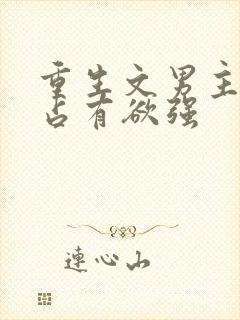 重生文男主
占有欲强
連心山